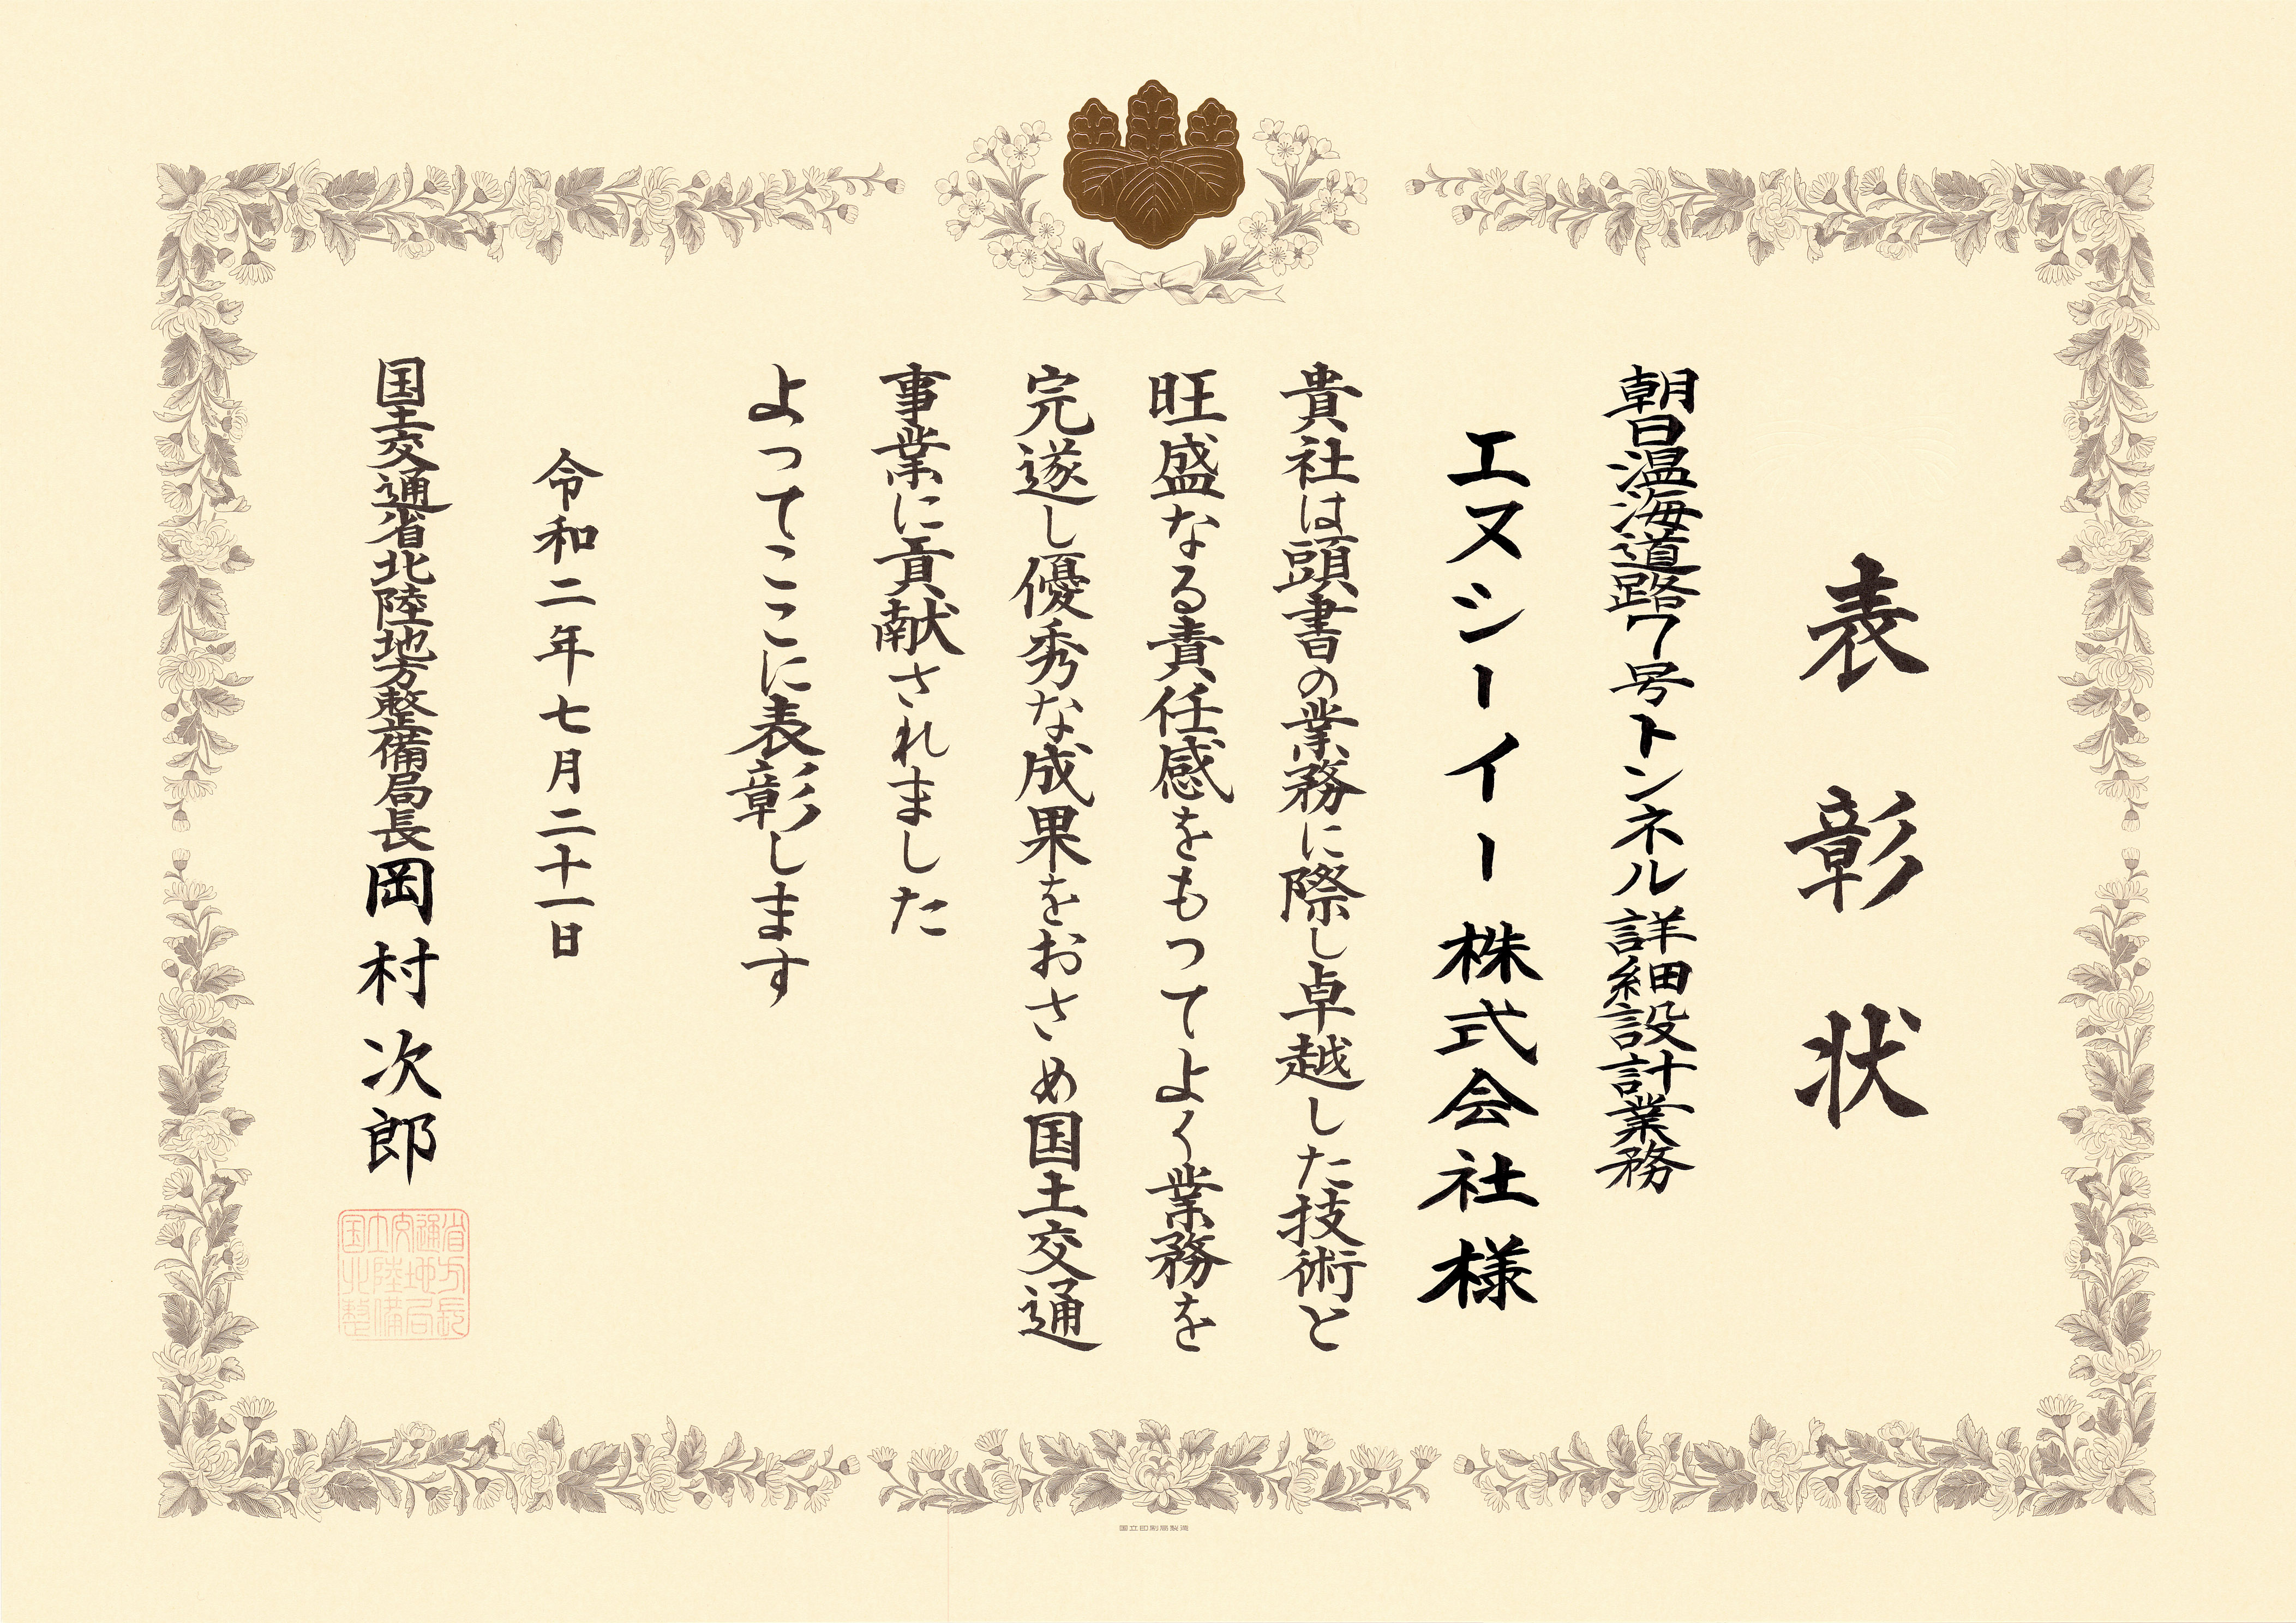 表彰状
朝日温海道路7号トンネル詳細設計業務
エヌシーイー株式会社様
貴社は頭書の業務に際し卓越した技術と
旺盛なる責任感をもつてよく業務を
完遂し優秀な成果をおさめ国土交通
事業に貢献されました
よってここに表彰します
令和二年七月二十一日
国土交通省北陸地方整備局長 岡村次郎
国土交通省
北陸地方
整備局長
国立印刷局製造